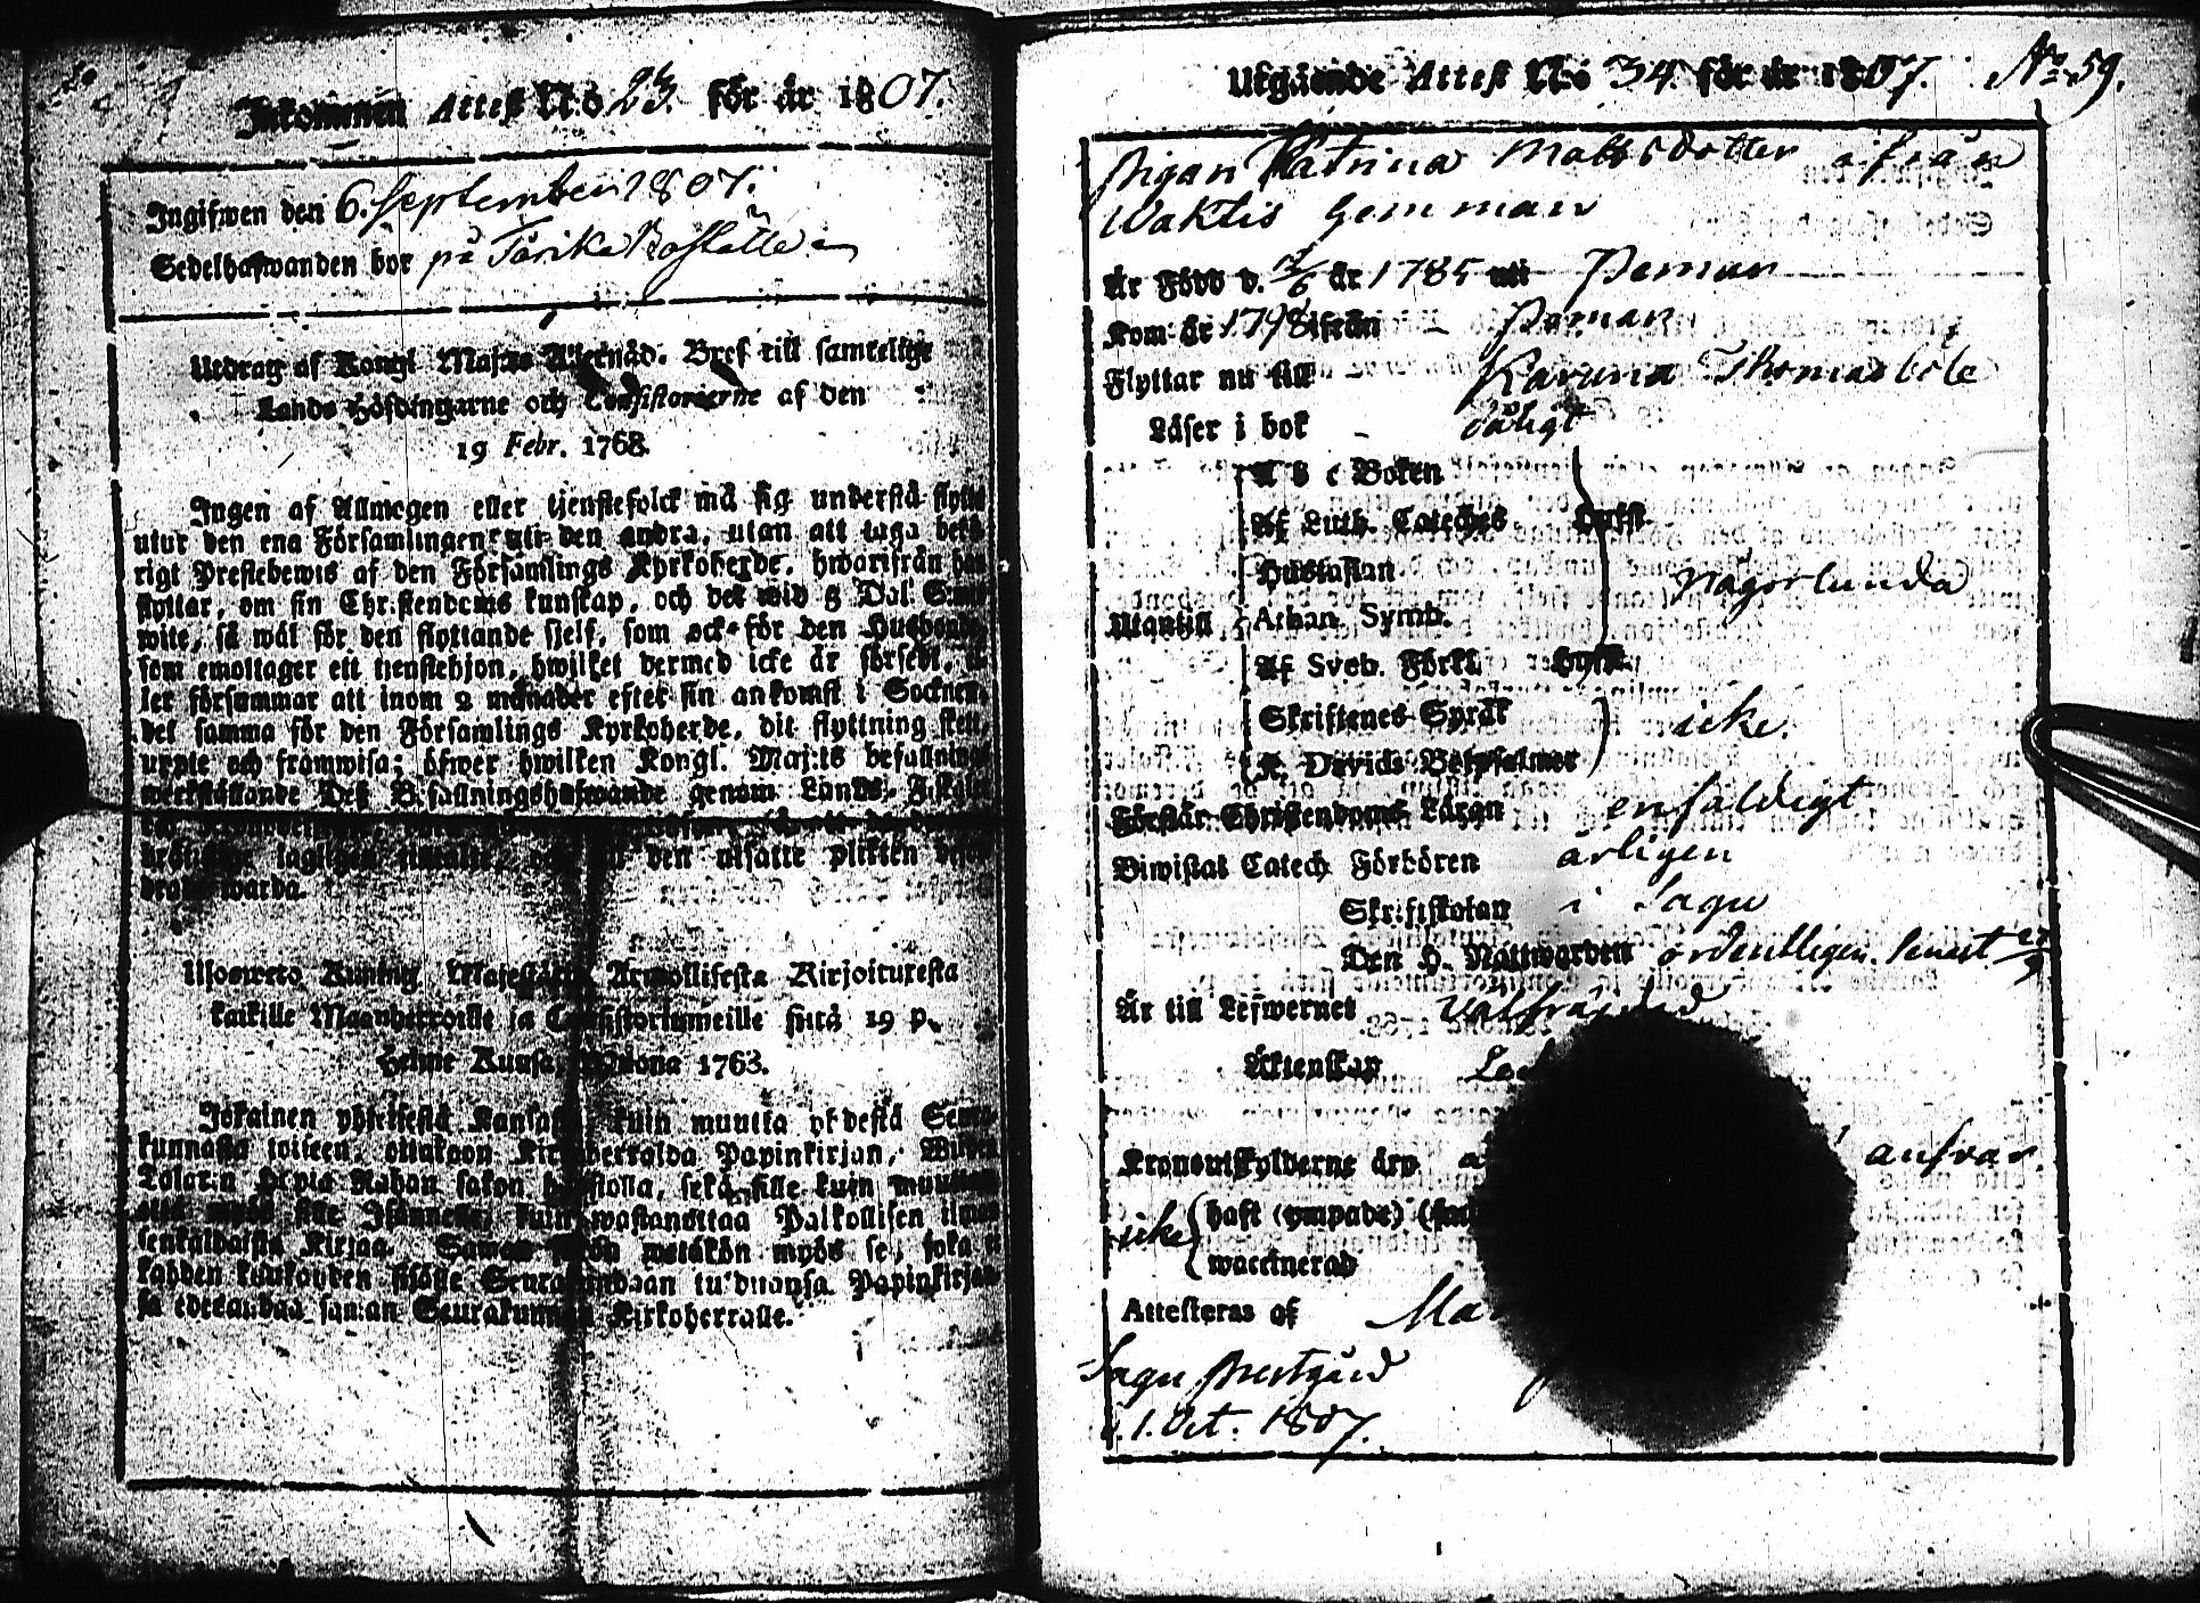 Inkommen Attest N:o 23. för år 1807.
Ingifwen den 6. September 1807.
Sedelhafwanden bor på Tärika Boställe
Utdrag af Kongl Maj:ts Allernåd. Bref till samtellige
Lands Höfdingarne och Consistorierne af den
19 Febr. 1768.
Ingen af Allmogen eller tjenstefolck må sig understå flytta
utur den ena Församlingen uti den andra, utan att taga behö
rigt Prestebewis af den Församlings Kyrkoherde, hwarifrån han
flyttar, om sin Christendoms kunskap, och det wid 5 Dal. S:mts
wite, så wäl för den flyttande sjelf, som ock för den Husbonde
som emottager ett tjenstehjon, hwilket dermed icke är försedt, el
ler försummar att inom 2 månader efter sin ankomst i Socknen
det samma för den Församlings Kyrkoherde, dit flyttning skett,
upte och framwisa; öfwer hwilken Kongl. Maj:ts befallning
werkställande Deß Befallningshafwande genom Lands-Fiskaler
lagligen den utsatte plikten
warda.
Ulosweto Kuning. Majestätin Armollisesta Kirjoituresta
kaikille Maanherroille ja Consistoriumeille siitä 19 p.
Helme Kuusa 1763.
Jokainen yhteisestä Kansasta kuin muutta yhdestä Seura-
kunnasta toiseen, ottakoon Kirkkoherralda Papinkirjan, Wiiden
Talarin Hopia Rahan sakon haastolla, sekä sille kuin muuttaa
että myös sille Isännelle, kuin wastanottaa Palkollisen ilman
senkaldaista Kirjaa. Saman wetäkön myös se, joka ei
kahden kuukauden sisälle Seurakundaan tulduansa Papinkirjan
sa edesanbaa saman Seurakunnan Kirkoherralle.
Utgående Attest N:o 34. för år 1807. No 59.
Pigan Catrina Mattsdotter ifrån
Waktis Hemman
Är Född d. 7/6 år 1785 uti Pemar
Kom år 1798 ifrån Pemar
Flyttar nu till Karuna Thomasböle
Läser i bok dåligt
A b c Boken
Af Luth. Cateches Hufst.
Hustaflan
Utantill Athan. Symb. någorlunda
Af Sveb. Förkl.
Skriftenes Språk
K. Davids Botpsalmer icke.
Förstår Christendoms Läran enfaldigt
Biwistat Catech Förhören årligen
Skriftskolan i Sagu
Den H. Nattwarden ordentligen. senast
Är till Lefwernet wälfräjdad
Äktenskap
Kronoutskylderne äro answar.
icke haft ympade)
waccinerad
Attesteras af
Sagu Prestgård
d. 1. Oct. 1807.